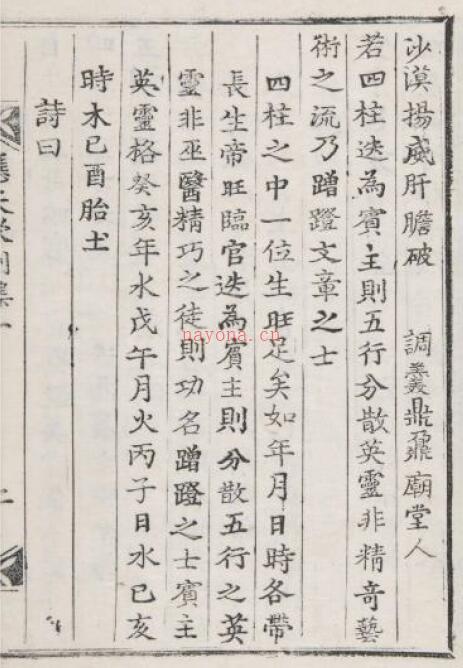 沙漠揚威肝膽破　調羹鼎鼐廟堂人
若四柱迭為賓主則五行分散英靈非精奇藝
術之流乃蹭蹬文章之士
四柱之中一位生旺足矣如年月日時各帶
長生帝旺臨官迭為賓主則分散五行之英
靈非巫醫精巧之徒則功名蹭蹬之士賓主
英靈格癸亥年水戊午月火丙子日水己亥
時木己酉胎土
詩曰
nayona.cn